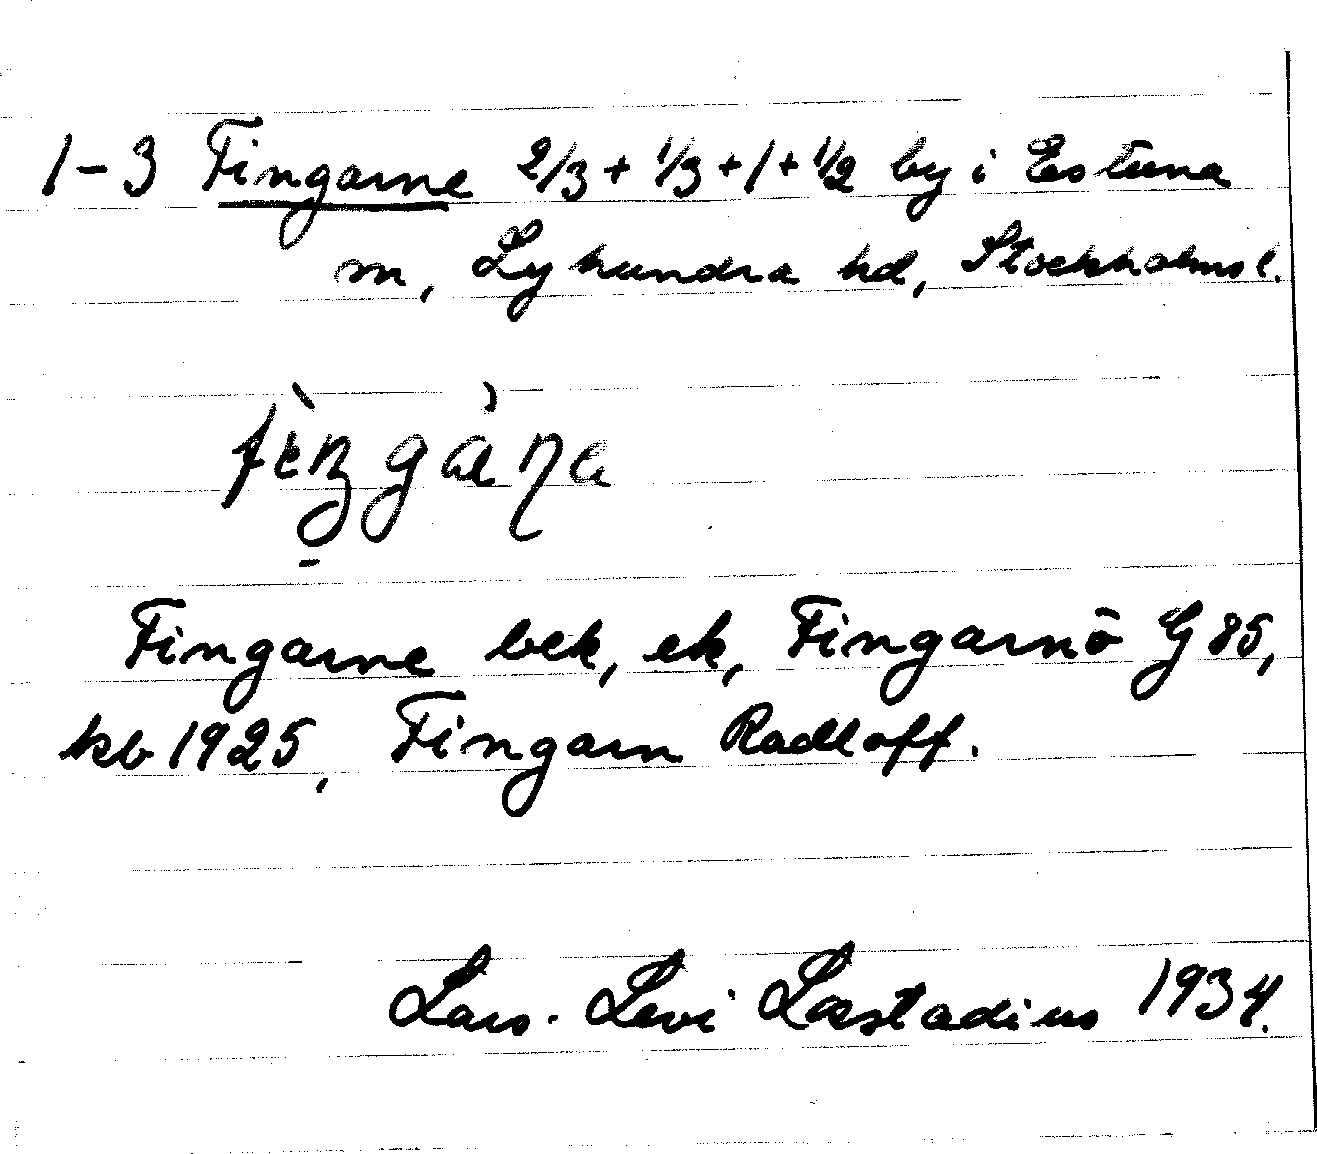 1-3 Fingarne 2/3 + 1/3 + 1 + 1/2 by i Estuna
sn, Lyhundra hd, Stockholms l.
Fingarne bek, ek, Fingarnö G 85,
kb 1925, Fingarn Radloff.
Lars-Levi Læstadius 1934.